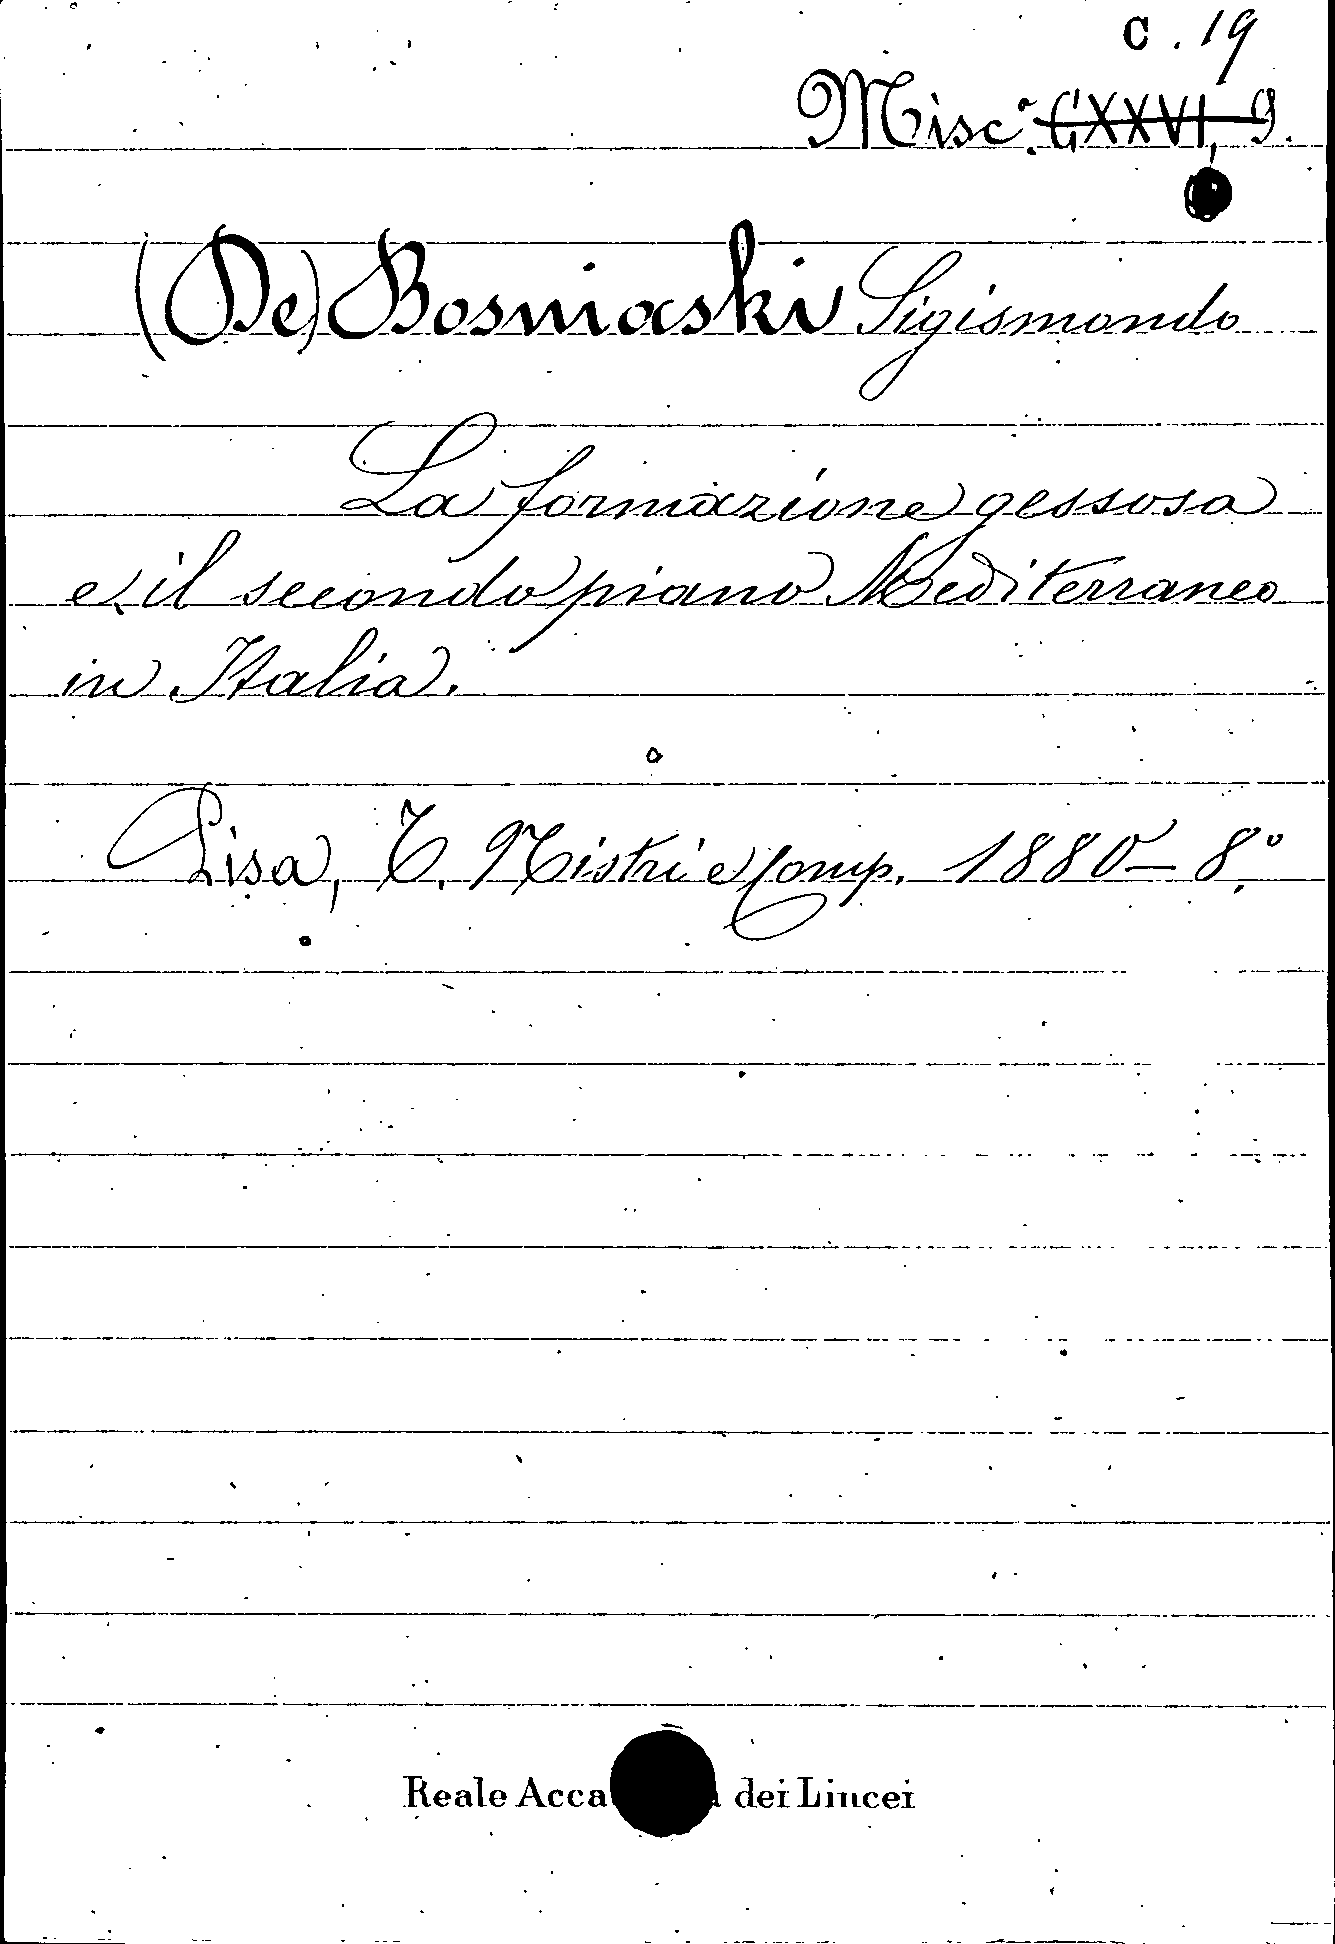 C. 19
Misc.a CXXVI, 9.
(De) Bosniaski Sigismondo
La formazione gessosa
e il secondo piano Mediterraneo
in Italia.
Pisa, T. Nistri e Comp. 1880 - 8.°
Reale Acca dei Lincei